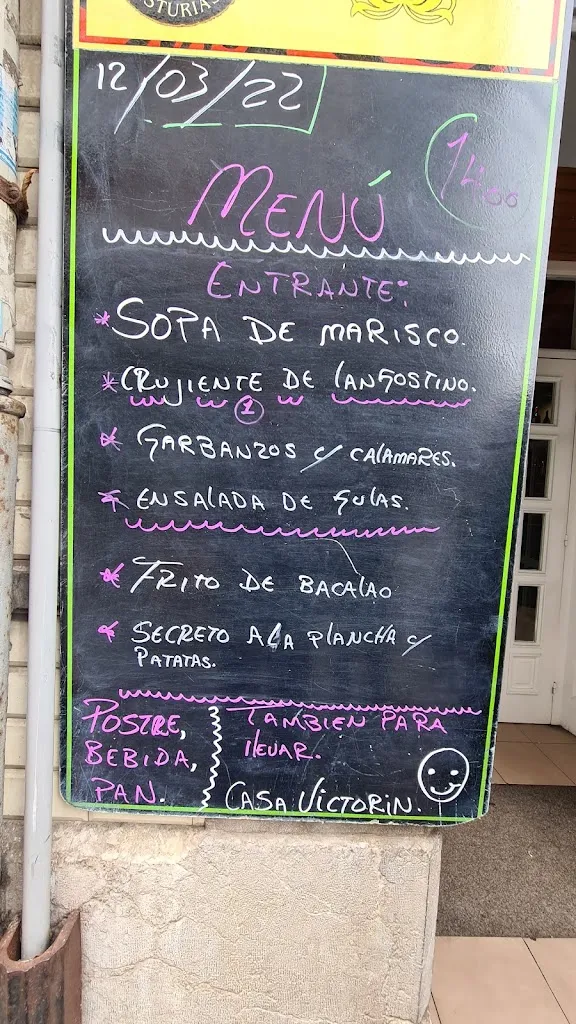 STURIAS
12/03/22
14.00
MENÚ
ENTRANTE:
* SOPA DE MARISCO.
* CRUJIENTE DE LANGOSTINO.
1
* GARBANZOS C/ CALAMARES.
* ENSALADA DE GULAS.
* FRITO DE BACALAO
* SECRETO A LA PLANCHA C/
PATATAS.
POSTRE,
BEBIDA,
PAN.
TAMBIEN PARA
llEVAR.
CASA VICTORIN.